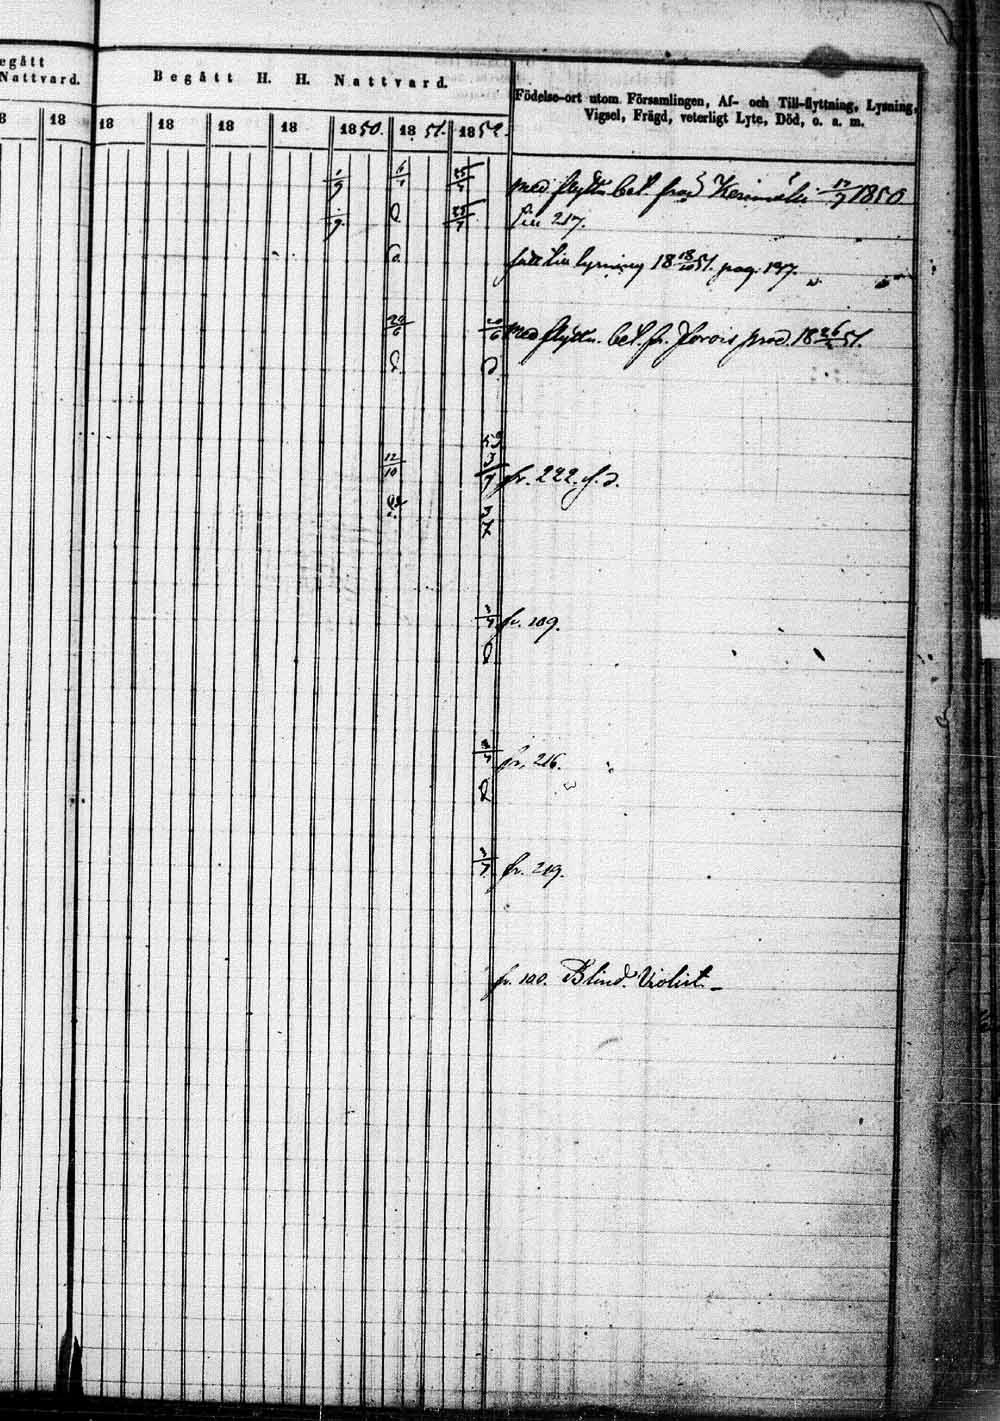 egått
Nattvard.
Begått H. H. Nattvard.
Födelse-ort utom Församlingen, Af- och Till-flyttning, Lysning,
Vigsel, Frägd, veterligt Lyte, Död, o. a. m.
8 18 18 18 18 18 1850. 1851. 1852.
1/9 6/7 25/7 med flyttn. bet. fr. Kerimäki 17/7 1850
1/9 d 25/7 till 217.
d.
lysning 18 18/10 51. pag. 197.
29/6 20/6 med flyttn. bet. fr. Jorois prod. 18 26/ 51.
d. d.
53
12/10 3/7 fr. 222. f. d.
3/7
3/7 fr. 109.
d
3/7 fr. 216.
d
3/7 fr. 219.
fr. 100. Blind. Violist.